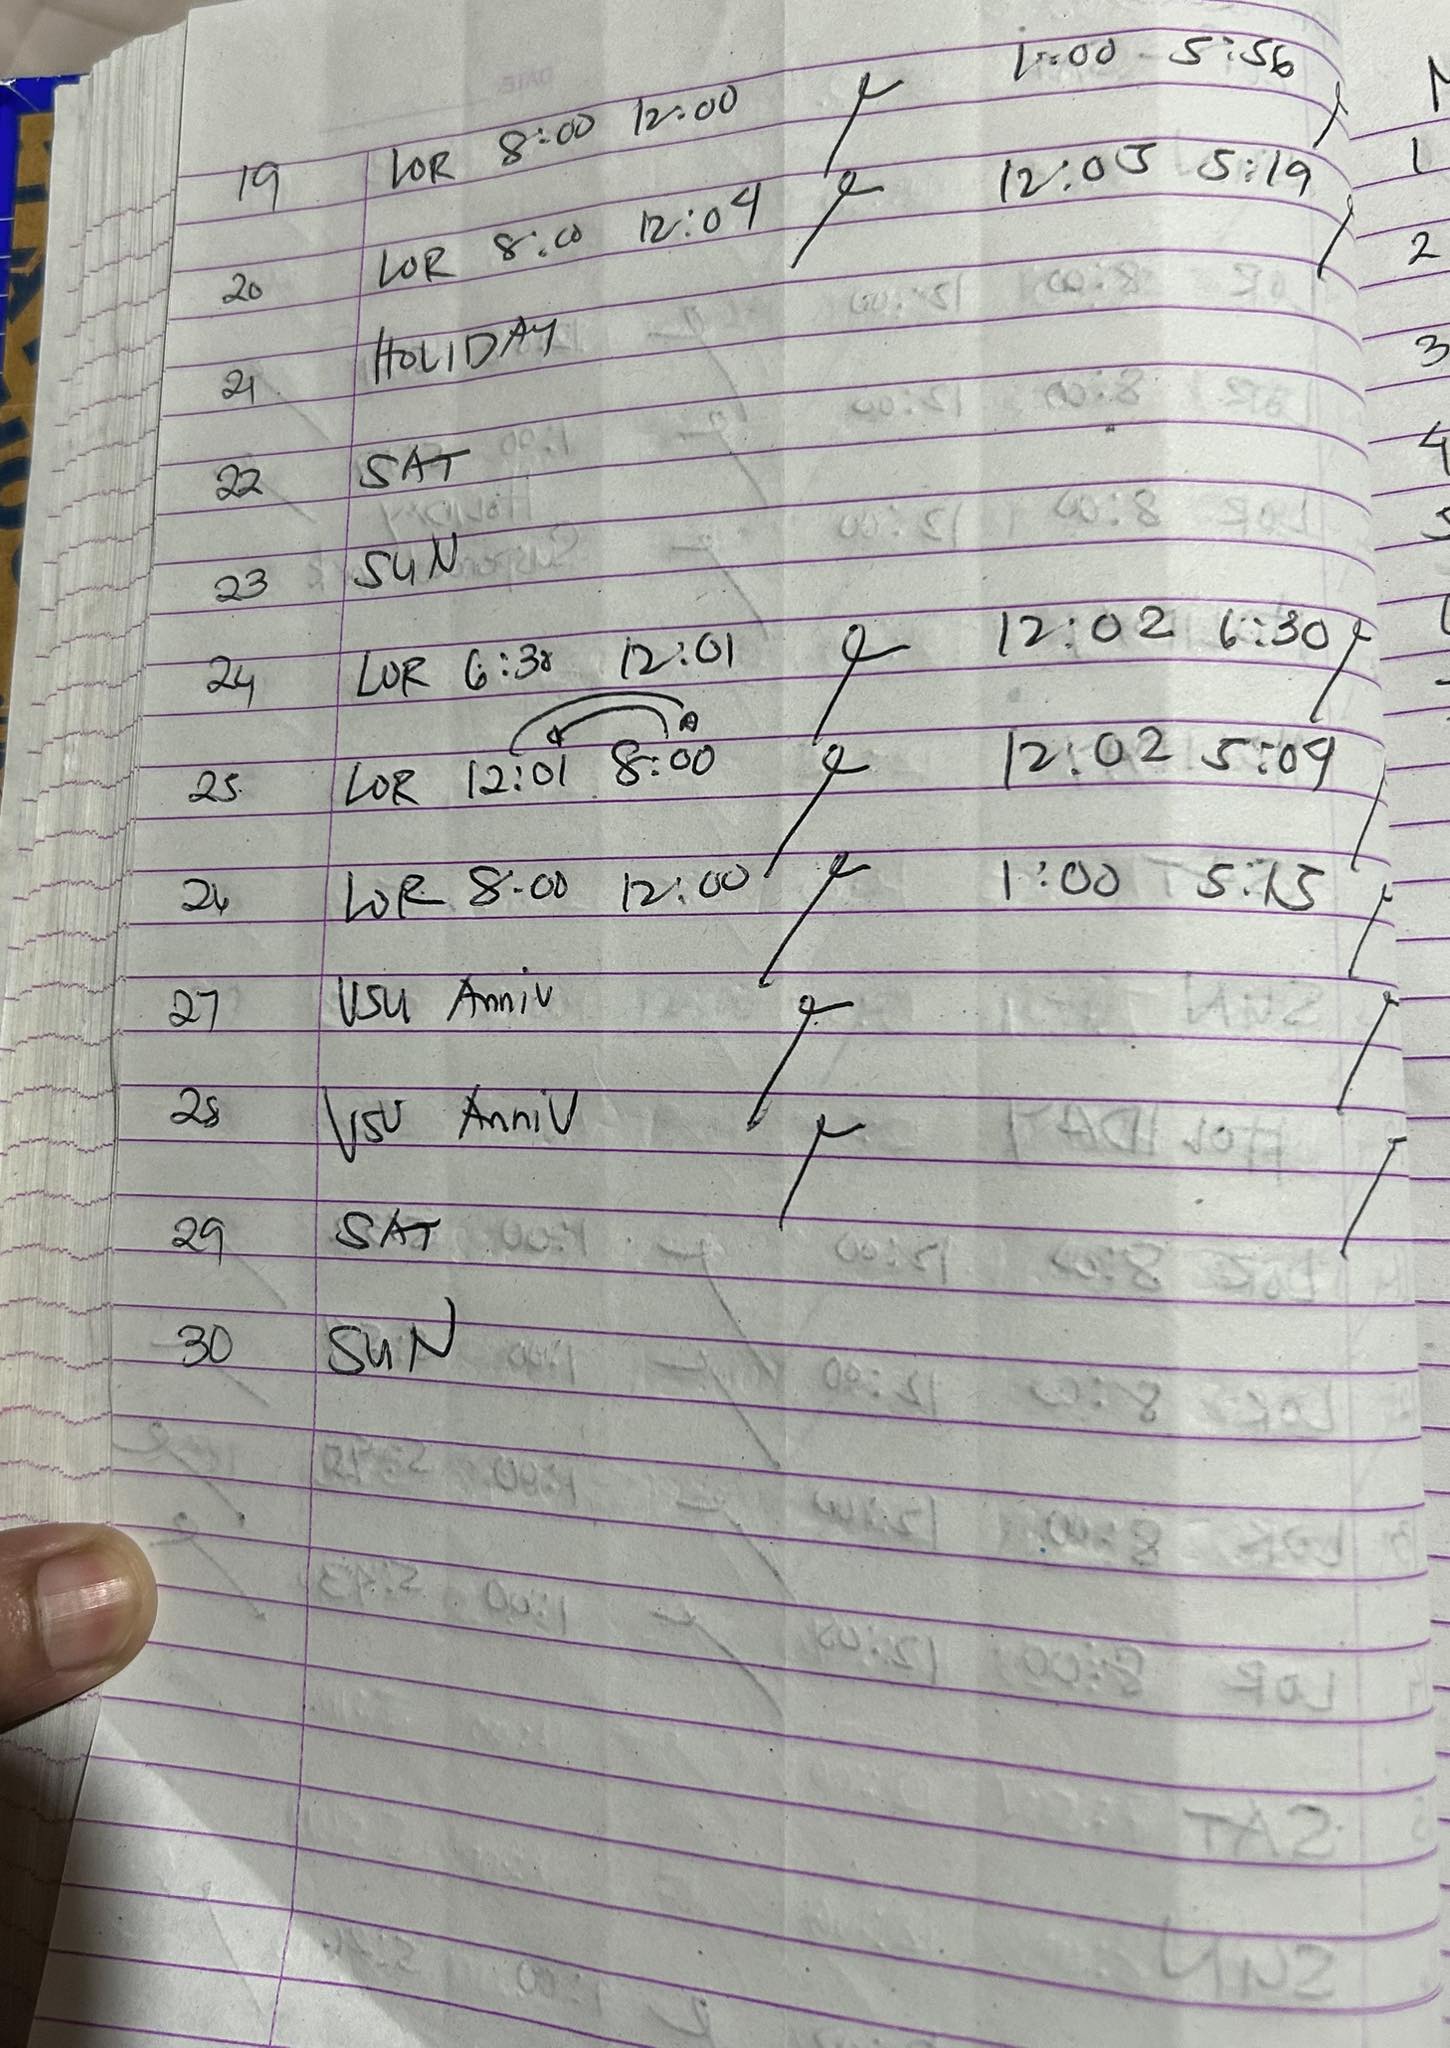 19 LOR 8:00 12:00 1:00 - 5:56
20 LOR 8:00 12:04 12:05 5:19
21 HOLIDAY
22 SAT
23 SUN
24 LOR 6:30 12:01 12:02 6:30
25 LOR 12:01 8:00 12:02 5:09
26 LOR 8:00 12:00 1:00 5:15
27 VSU Anniv
28 VSU Anniv
29 SAT
30 SUN
1
2
3
4